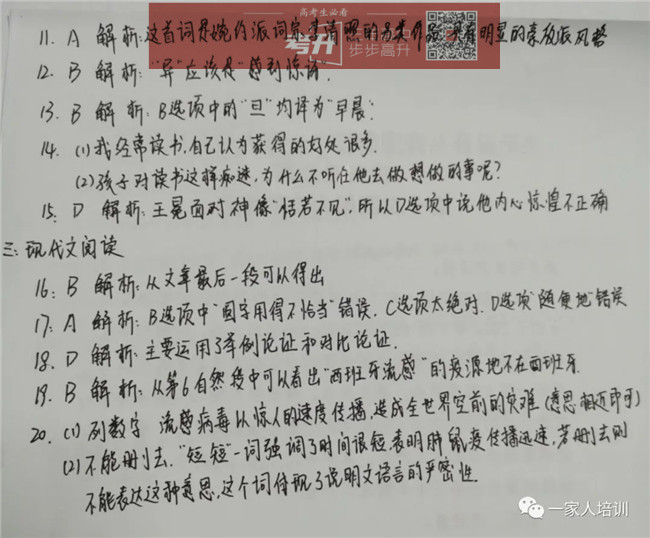 高考生必看
考升 步步高升
11. A 解析:这首词是婉约派词宗李清照的另类作品,具有明显的豪放派风格
12. B 解析:"异"应该是"感到惊讶".
13. B 解析:B选项中的"旦"均译为"早晨".
14. (1)我经常读书,自己认为获得的好处很多.
(2)孩子对读书这样痴迷,为什么不听任他去做想做的事呢?
15. D 解析:王冕面对神像"恬若不见",所以D选项中说他内心惊惶不正确
三:现代文阅读
16. B 解析:从文章最后一段可以得出
17. A 解析:B选项中"国字用得不恰当"错误,C选项太绝对.D选项"随便地"错误
18. D 解析:主要运用了举例论证和对比论证.
19. B 解析:从第6自然段中可以看出"西班牙流感"的疫源地不在西班牙.
20. (1)列数字 流感病毒以惊人的速度传播,造成全世界空前的灾难(意思相近即可)
(2)不能删去."短短"一词强调了时间很短,表明肺鼠疫传播迅速,若删去则
不能表达这种意思,这个词体现了说明文语言的严密性.
一家人培训